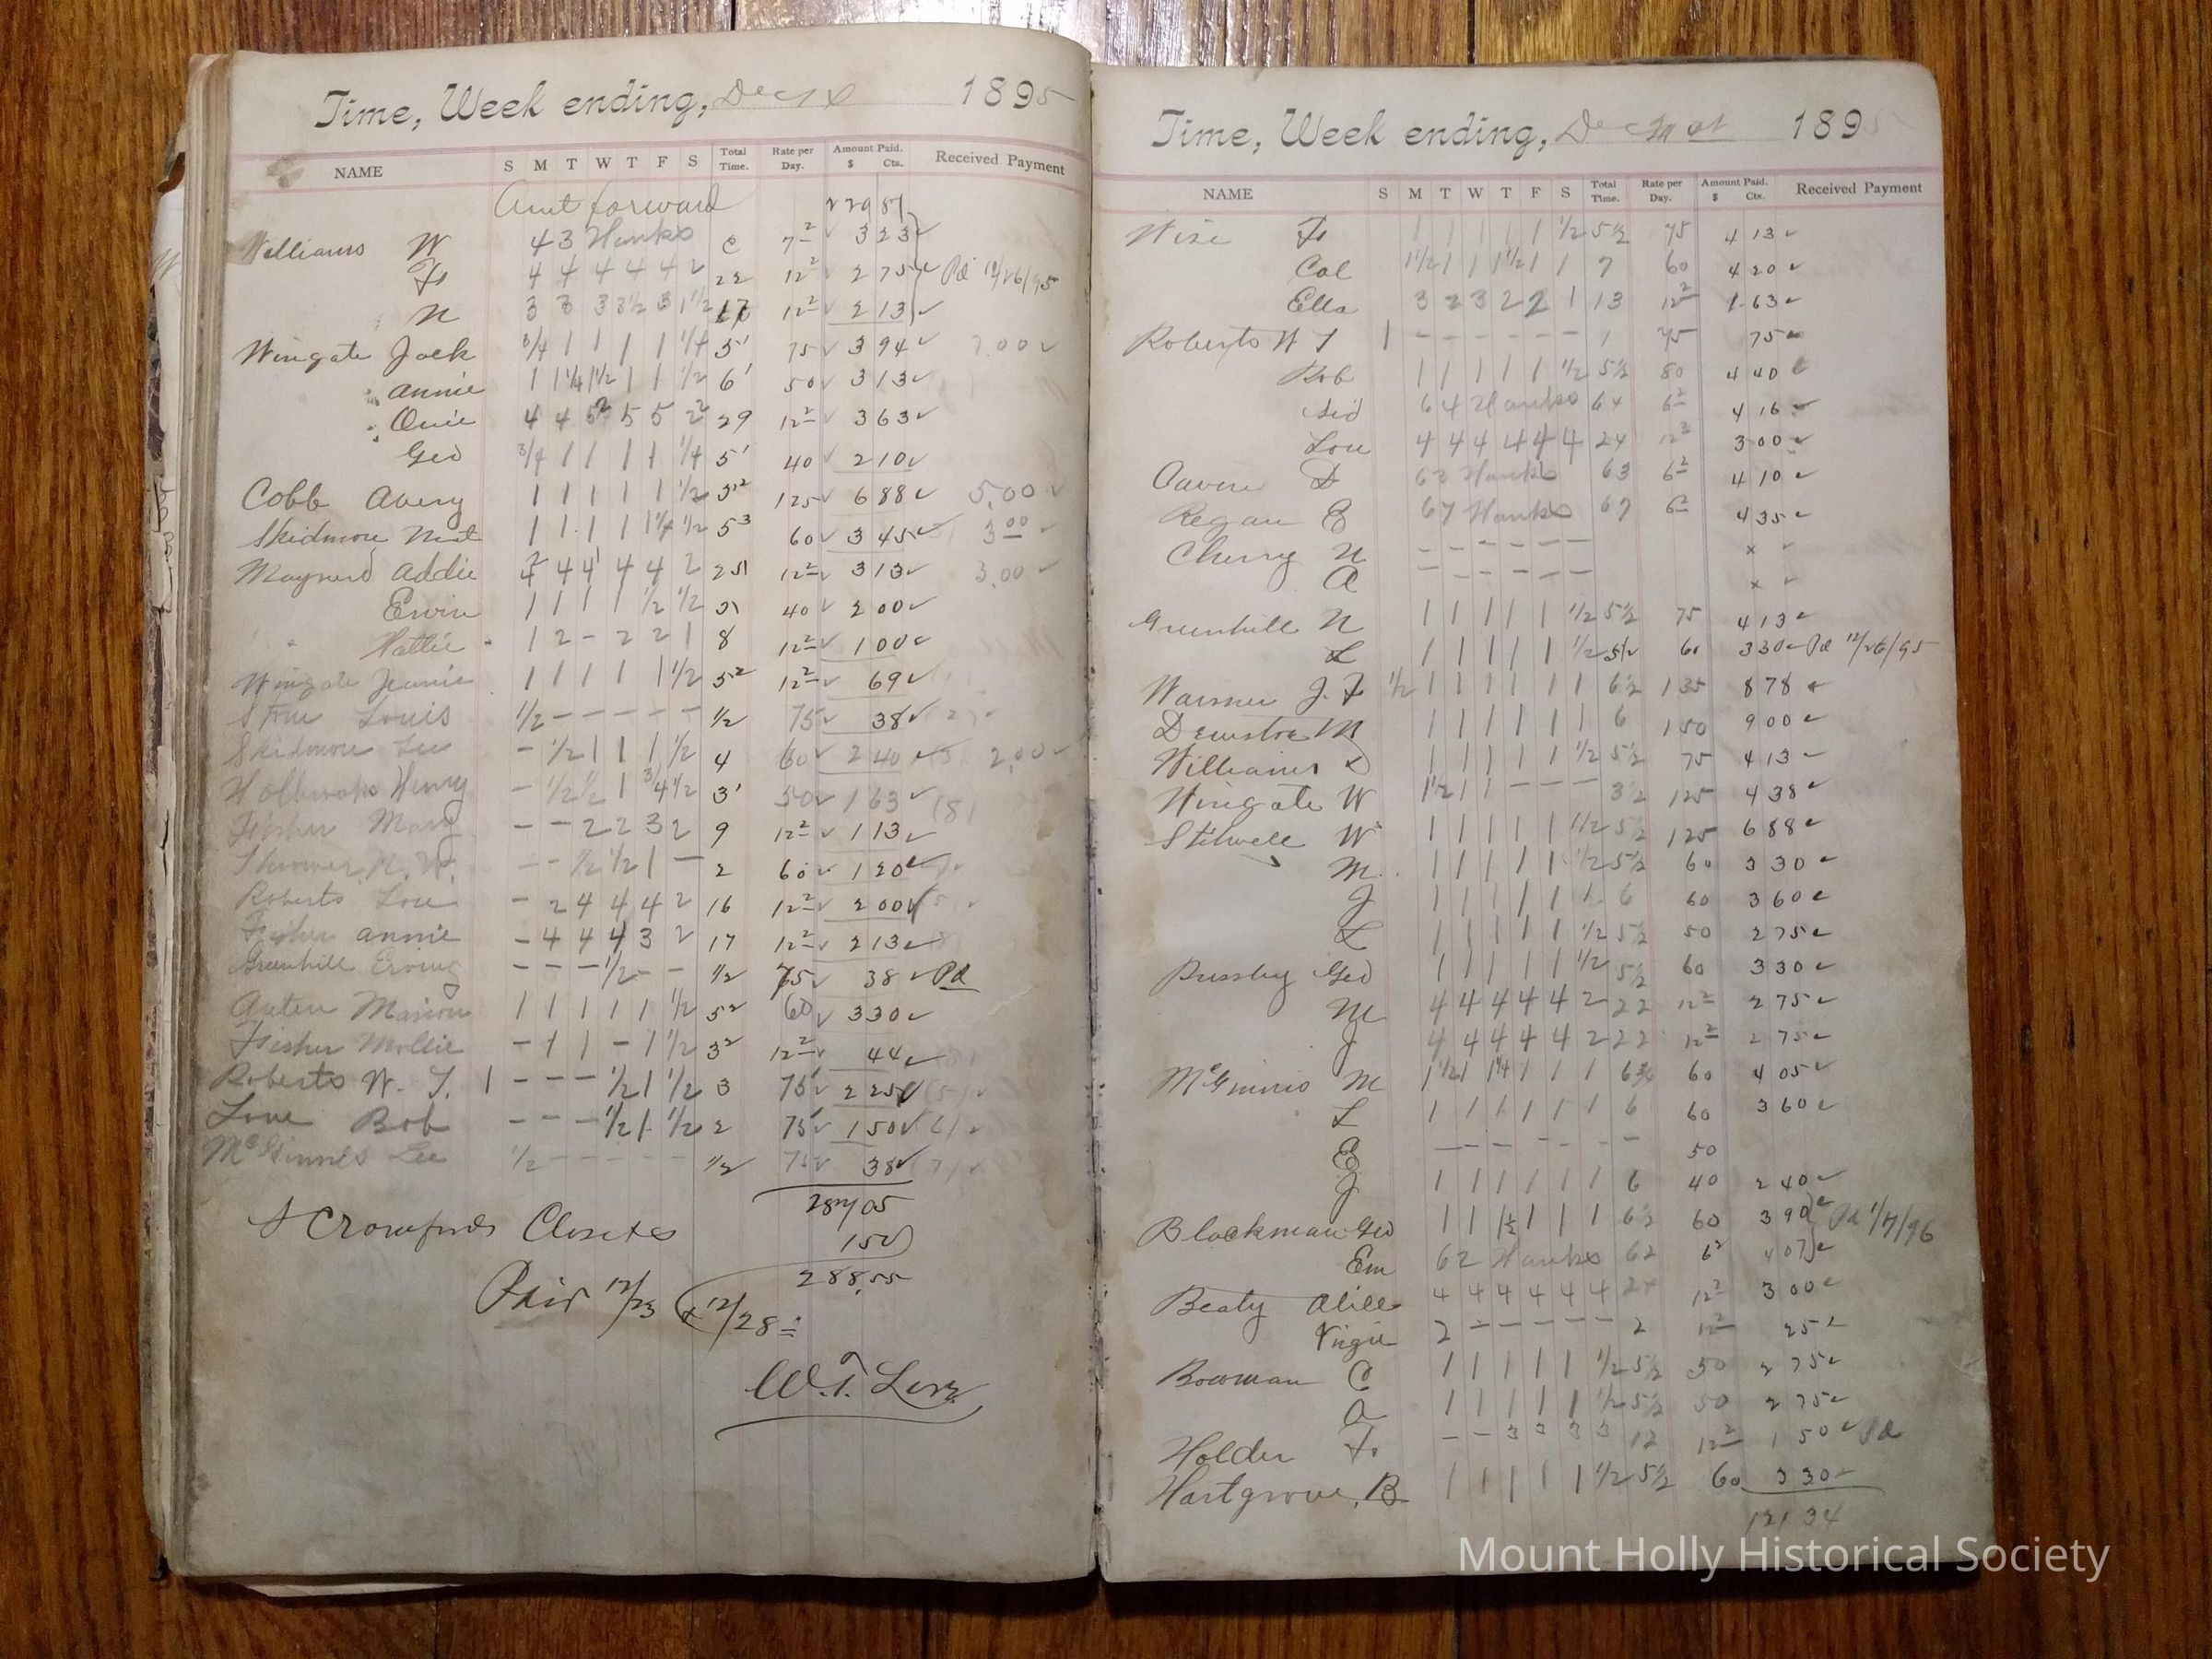 Time, Week ending, Dec 1895
NAME S M T W T F S Total Time. Rate per Day. Amount Paid. $ Cts. Received Payment
Amt forward 229 81
Williams W 43 Hanks 7 2 3 23
F 4 4 4 4 4 2 22 12 2 2 75 Pd 12/26/95
N 3 3 3 3 1/2 3 1 1/2 17 12 2 2 13
Wingate Jack 3/4 1 1 1 1 1/4 5' 75 3 94 7.00
" Annie 1 1 1/4 1 1/2 1 1 1/2 6' 50 3 13
" Ovie 4 4 5 2 5 5 2 2 29 12 2 3 63
Geo 3/4 1 1 1 1 1/4 5' 40 2 10
Cobb Avery 1 1 1 1 1 1/2 5 2 125 6 88 5.00
Skidmore 1 1 1 1 1 1/4 1/2 5 3 60 3 45 3 00
Maynerd Addie 4 4 4 4 2 25 12 2 3 13 3.00
Ervin 1 1 1 1 1/2 1/2 5 40 2 00
Hattie 1 2 - 2 2 1 8 12 2 1 00
Wingate Jennie 1 1 1 1 1 1/2 5 2 12 2 69
Louis 1/2 - - - - - 1/2 75 38
Skidmore Lee - 1/2 1 1 1 1/2 4 60 2 40 2.00
Holbrooks Henry - 1/2 1/2 1 3/4 1/2 3' 50 1 63 (8)
Fisher Mary - - 2 2 3 2 9 12 2 1 13
Thrower N. W. - - 1/2 1/2 1 - 2 60 1 20
Roberts Lou - 2 4 4 4 2 16 12 2 2 00 (5)
Fisher Annie - 4 4 4 3 2 17 12 2 2 13 (8)
Greenhill Erving - - - 1/2 - - 1/2 75 38 Pd
Auten Marion 1 1 1 1 1 1/2 5 2 60 3 30
Fisher Mollie - 1 1 - 1 1/2 3 2 12 2 44 (8)
Roberts W. T. 1 - - - 1/2 1 1/2 3 75 2 25 (5)
Love Bob - - - 1/2 1 1/2 2 75 1 50 (6)
McGinnes Lee 1/2 - - - - - 1/2 75 38 (7)
287 05
S Crawfords Closets 1 50
288.55
Paid 12/23 & 12/28
W. T. Love
Time, Week ending, Dec 21st 1895
NAME S M T W T F S Total Time. Rate per Day. Amount Paid. $ Cts. Received Payment
Wise F 1 1 1 1 1 1/2 5 1/2 75 4 13
Cal 1 1/2 1 1 1 1/2 1 1 7 60 4 20
Ella 3 2 3 2 2 1 13 12 2 1 63
Roberts W T 1 - - - - - - 1 75 75
Rob 1 1 1 1 1 1/2 5 1/2 80 4 40
Sid 64 Hanks 64 6 2 4 16
Lou 4 4 4 4 4 4 24 12 2 3 00
D 63 Hanks 63 6 2 4 10
Regan E 67 Hanks 67 6 2 4 35
Cherry N - - - - - - x
A - - - - - - x
Greenhill N 1 1 1 1 1 1/2 5 1/2 75 4 13
L 1 1 1 1 1 1/2 5 1/2 60 3 30 Pd 12/26/95
Warner J. F 1/2 1 1 1 1 1 1 6 1/2 135 8 78
M 1 1 1 1 1 1 6 150 9 00
Williams 1 1 1 1 1 1/2 5 1/2 75 4 13
Wingate W 1 1/2 1 1 - - - 3 1/2 125 4 38
Stilwell W 1 1 1 1 1 1/2 5 1/2 125 6 88
M. 1 1 1 1 1 1/2 5 1/2 60 3 30
J 1 1 1 1 1 1 6 60 3 60
L 1 1 1 1 1 1/2 5 1/2 50 2 75
Pressley Geo 1 1 1 1 1 1/2 5 1/2 60 3 30
M 4 4 4 4 4 2 22 12 2 2 75
J 4 4 4 4 4 2 22 12 2 2 75
McGinnis M 1 1/2 1 1 1/4 1 1 1 6 3/4 60 4 05
L 1 1 1 1 1 1 6 60 3 60
E - - - - - - 50
J 1 1 1 1 1 1 6 40 2 40
Blackman Geo 1 1 1 1/2 1 1 1 6 1/2 60 3 90 Pd 1/7/96
Em 62 Hanks 62 6 2 4 07
Beaty Allie 4 4 4 4 4 4 24 12 2 3 00
Virgie 2 - - - - - 2 12 2 25
Bowman C 1 1 1 1 1 1/2 5 1/2 50 2 75
A 1 1 1 1 1 1/2 5 1/2 50 2 75
Holder F - - 3 3 3 3 12 12 2 1 50 Pd
Hartgrove, B 1 1 1 1 1 1/2 5 1/2 60 3 30
121 34
Mount Holly Historical Society